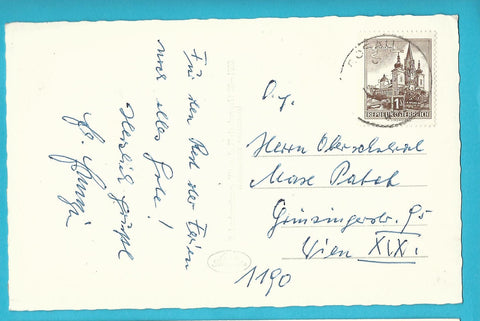 Für den Rest der Ferien
noch alles Gute!
Herzlich grüßt
O. g.
Herrn Oberschulrat
Max Patek
Grinzingerstr. 95
Wien XIX.
1190
1S
REPUBLIK ÖSTERREICH